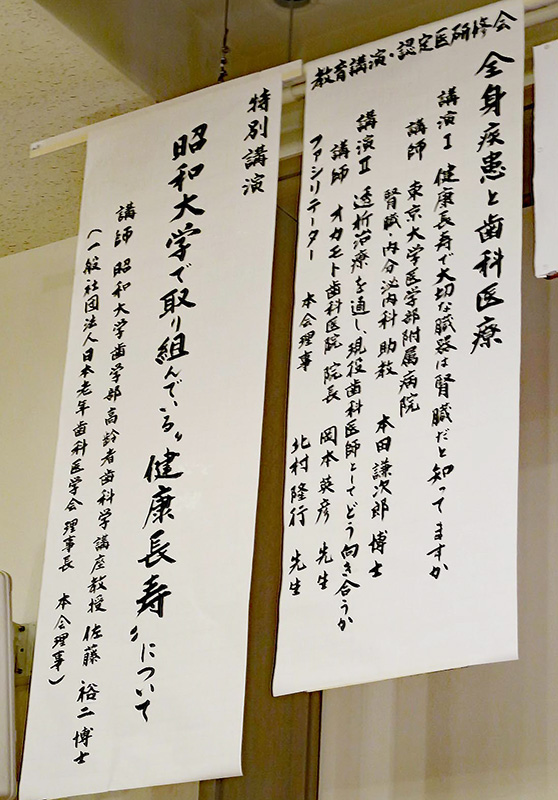 教育講演・認定医研修会
全身疾患と歯科医療
講演Ⅰ 健康長寿で大切な臓器は腎臓だと知ってますか
講師 東京大学医学部附属病院
腎臓・内分泌内科 助教 本田謙次郎 博士
講演Ⅱ 透析治療を通し、現役歯科医師としてどう向き合うか
講師 オカモト歯科医院 院長 岡本英彦 先生
ファシリテーター 本会理事 北村隆行 先生
特別講演
昭和大学で取り組んでいる〝健康長寿〟について
講師 昭和大学歯学部高齢者歯科学講座教授 佐藤裕二 博士
（一般社団法人日本老年歯科医学会理事長 本会理事）